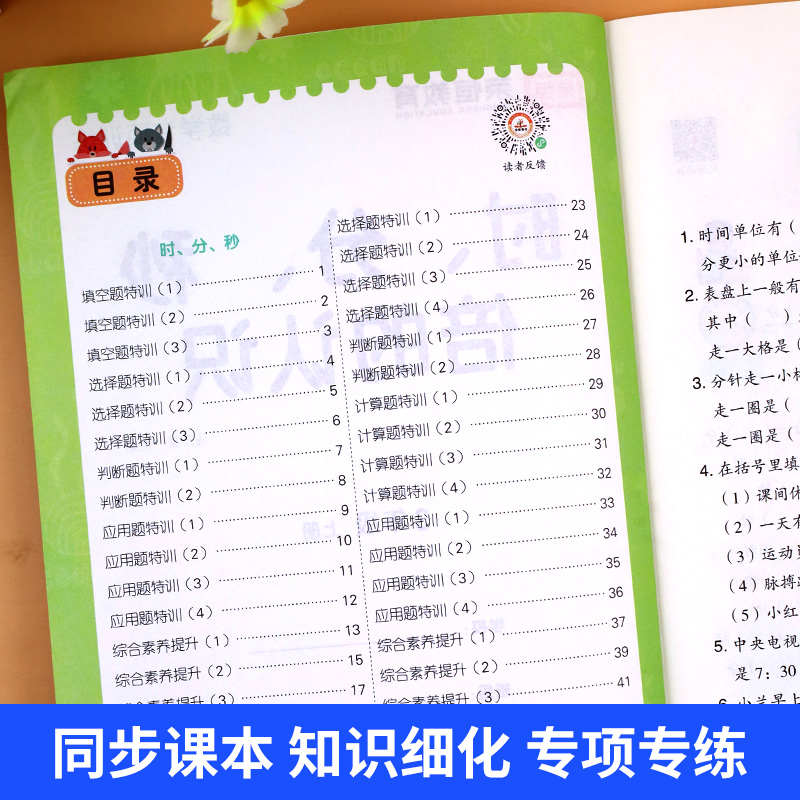 目录
读者反馈
时、分、秒
填空题特训（1） 1
填空题特训（2） 2
填空题特训（3） 3
选择题特训（1） 4
选择题特训（2） 5
选择题特训（3） 6
判断题特训（1） 7
判断题特训（2） 8
应用题特训（1） 9
应用题特训（2） 10
应用题特训（3） 11
应用题特训（4） 12
综合素养提升（1） 13
综合素养提升（2） 15
综合素养提升（3） 17
选择题特训（1） 23
选择题特训（2） 24
选择题特训（3） 25
选择题特训（4） 26
判断题特训（1） 27
判断题特训（2） 28
计算题特训（1） 29
计算题特训（2） 30
计算题特训（3） 31
计算题特训（4） 32
应用题特训（1） 33
应用题特训（2） 34
应用题特训（3） 35
应用题特训（4） 36
综合素养提升（1） 37
综合素养提升（2） 39
综合素养提升（3） 41
1. 时间单位有（
分更小的单位
2. 表盘上一般有
其中（ ）
走一大格是（
3. 分针走一小格
走一圈是（
走一圈是（
4. 在括号里填
（1）课间休
（2）一天有
（3）运动员
（4）脉搏跳
（5）小红
5. 中央电视
是7：30
6. 小兰早上
同步课本 知识细化 专项专练